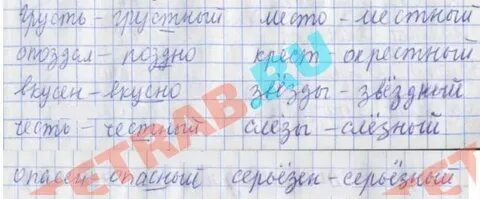 грусть – грустный место – местный
опоздал – поздно крест окрестный
вкусен – вкусно звёзды – звёздный
честь – честный слезы – слёзный
опасен – опасный серьёзен – серьёзный
TETRAB.RU